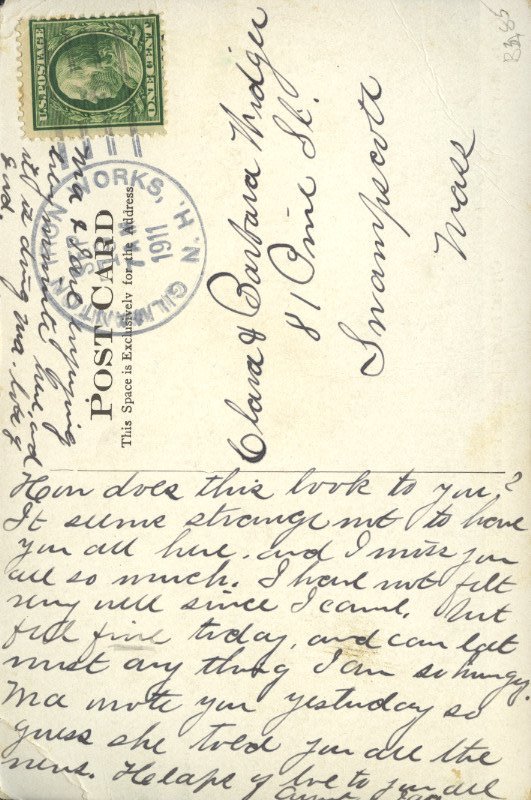 U.S. POSTAGE
ONE CENT
GILMANTON IRON WORKS, N. H.
SEP
1911
POST CARD
This Space is Exclusively for the Address.
Clara & Barbara Widger
81 Pine St.
Swampscott
Mass
How does this look to you?
It seems strange not to have
you all here, and I miss you
all so much. I have not felt
very well since I came. but
feel fine today, and can eat
most any thing I am so hungry.
Ma wrote you yesterday so
guess she told you all the
news. Heaps of love to you all
Aunt
Ma & Dave enjoying
every minute here, and
it's a doing Ma lots of
good.